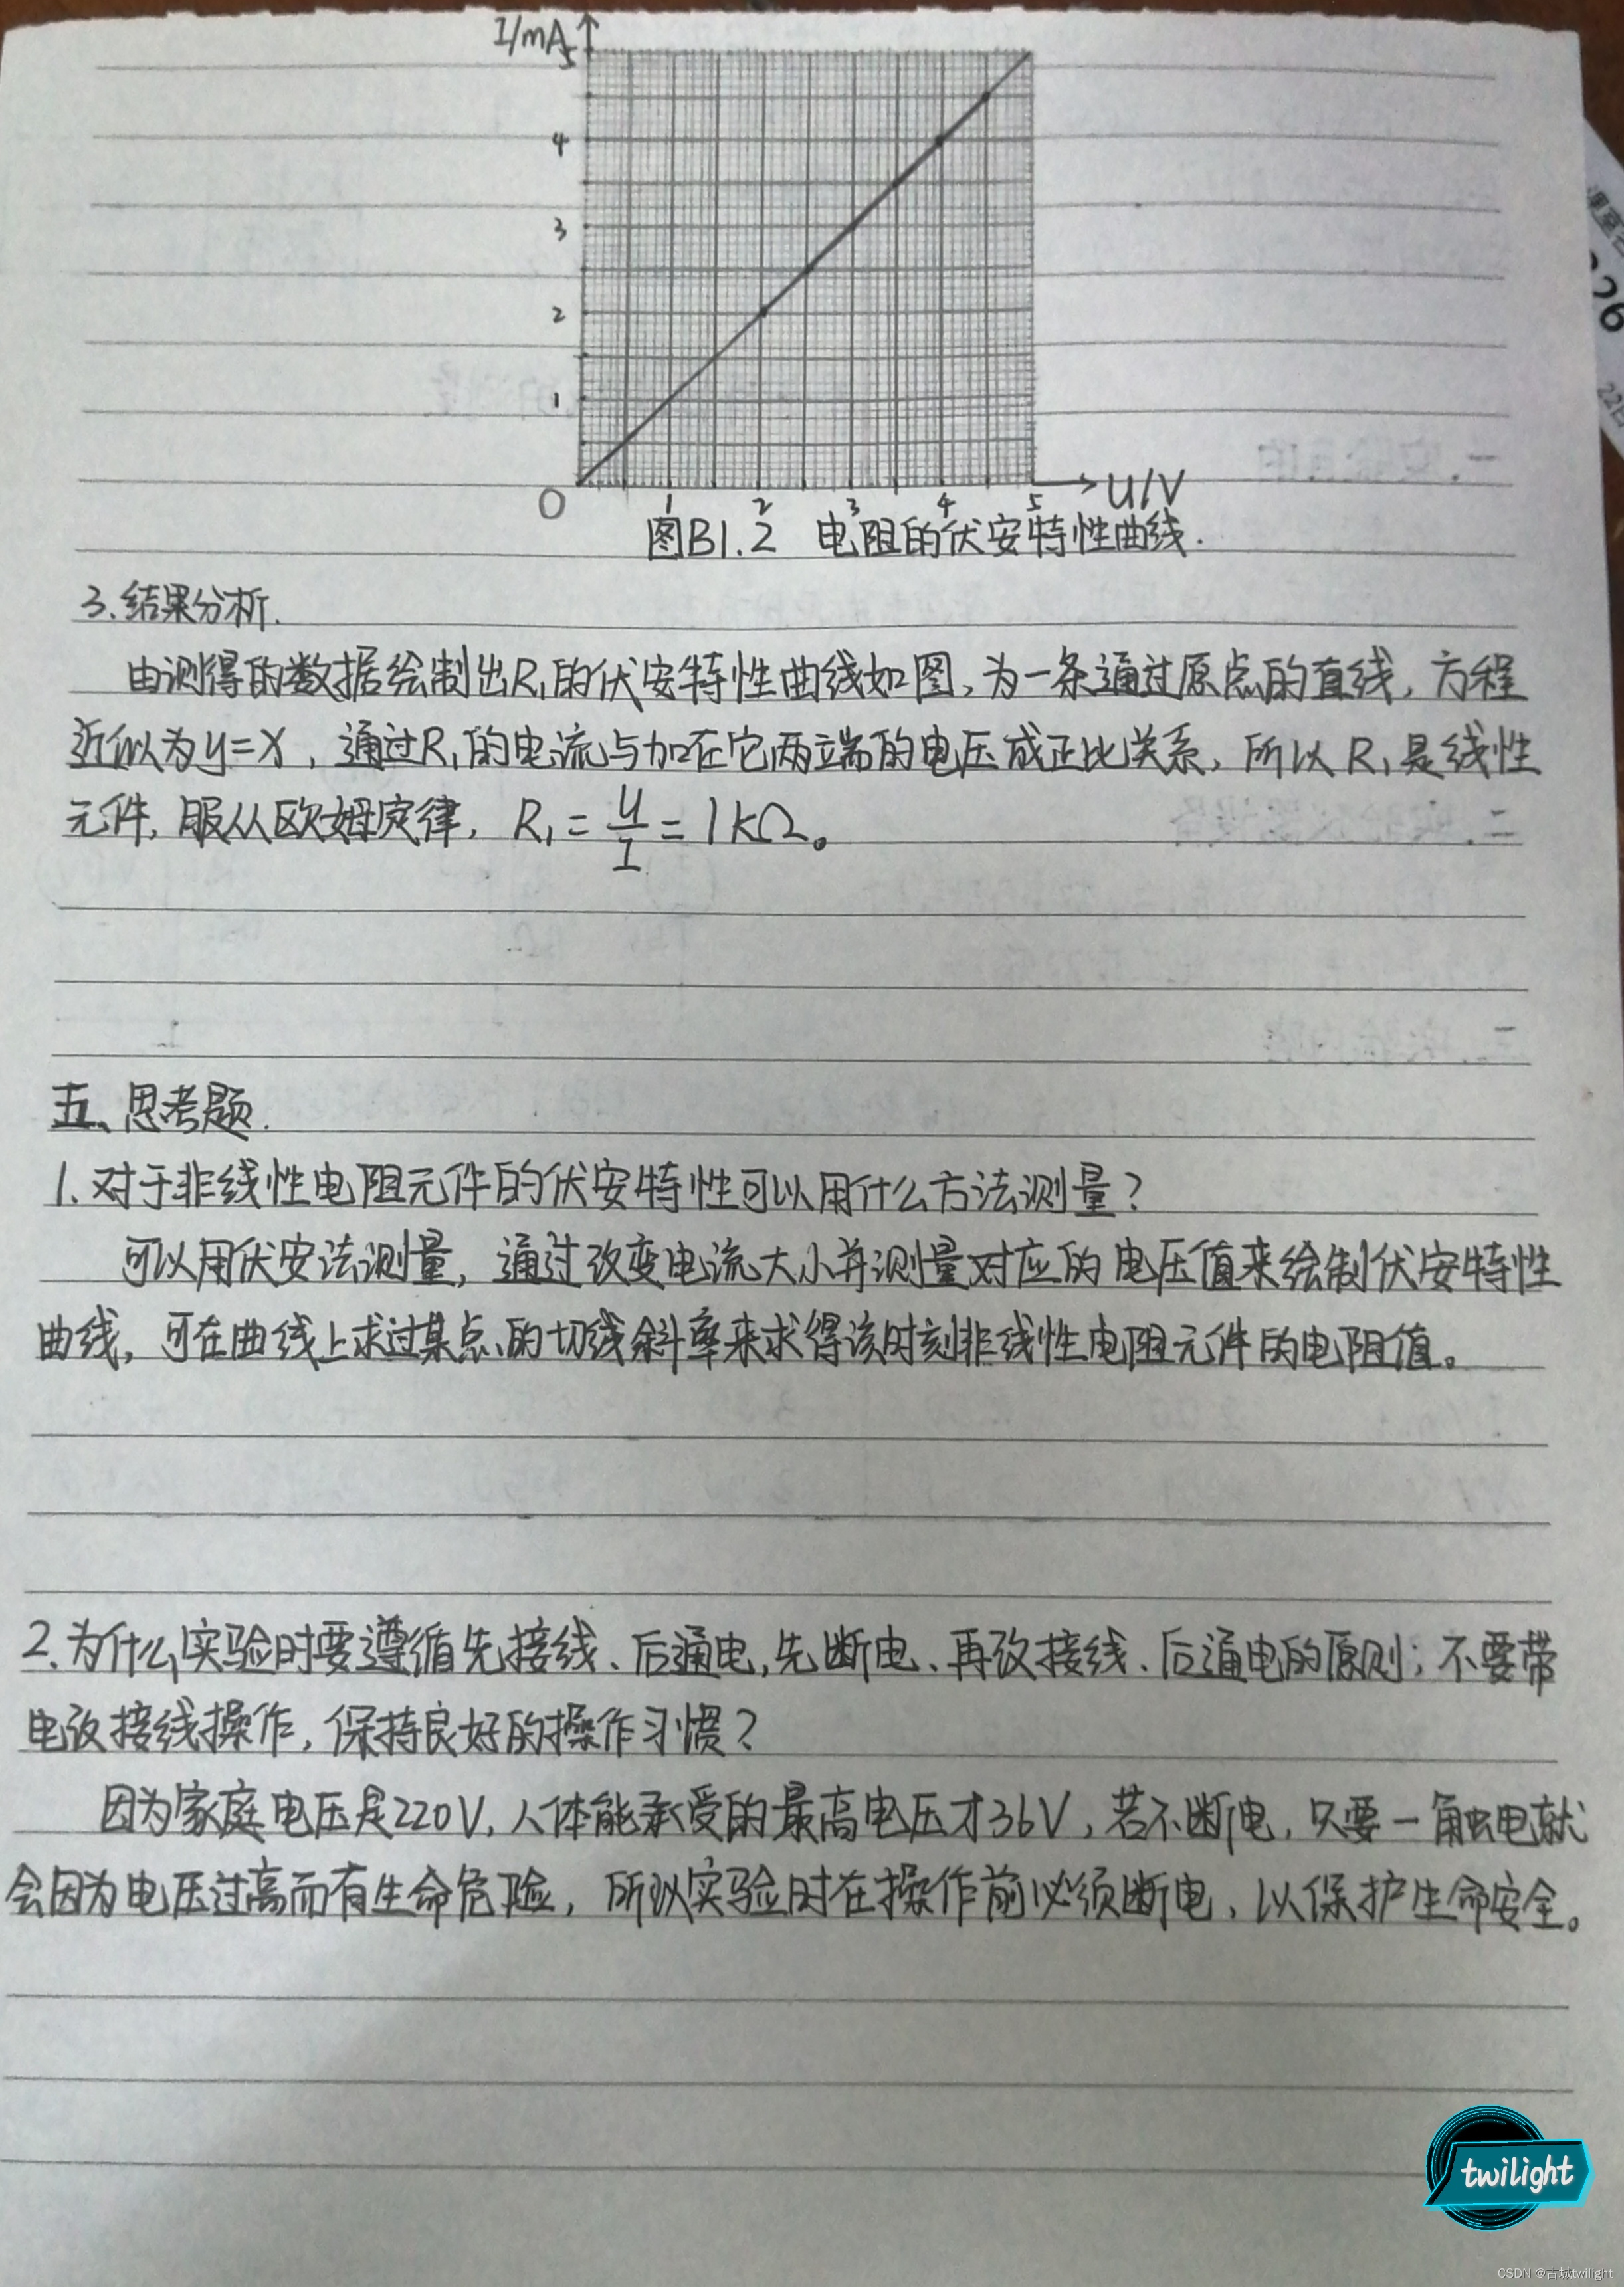 I/mA
5
4
3
2
1
O
1 2 3 4 5 U/V
图B1.2 电阻的伏安特性曲线.
3.结果分析.
由测得的数据绘制出R₁的伏安特性曲线如图,为一条通过原点的直线,方程
近似为y=x,通过R₁的电流与加在它两端的电压成正比关系,所以R₁是线性
元件,服从欧姆定律,R₁=U/I=1kΩ。
五、思考题.
1.对于非线性电阻元件的伏安特性可以用什么方法测量?
可以用伏安法测量,通过改变电流大小并测量对应的电压值来绘制伏安特性
曲线,可在曲线上求过某点的切线斜率来求得该时刻非线性电阻元件的电阻值。
2.为什么实验时要遵循先接线、后通电,先断电、再改接线、后通电的原则;不要带
电改接线操作,保持良好的操作习惯?
因为家庭电压是220V,人体能承受的最高电压才36V,若不断电,只要一触电就
会因为电压过高而有生命危险,所以实验时在操作前必须断电,以保护生命安全。
26
twilight
CSDN @古城twilight